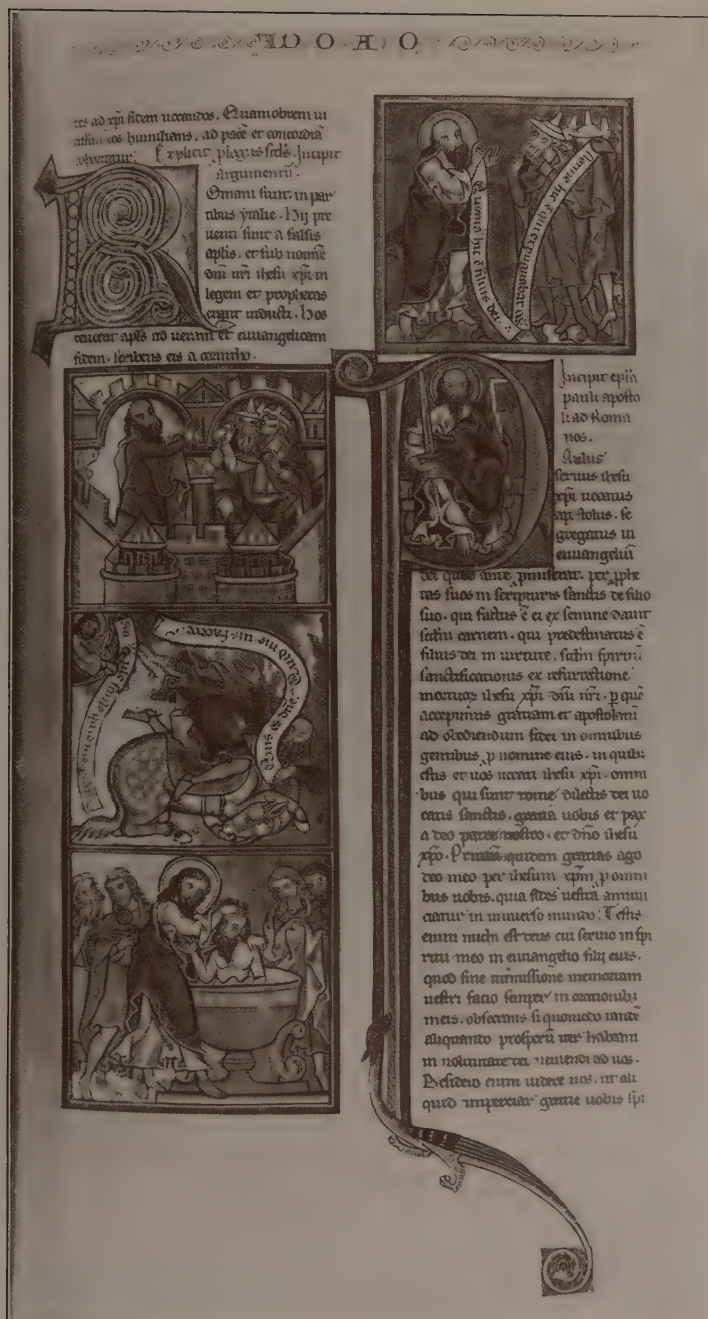 AD · O · A · O
tes ad xp̄i fidem uocandos. Quamobrem ui
cissim eos humilians, ad pacē et concordiā
cohortatur. Explicit plogus scd's. Incipit
Argumentū.
Romani sunt in par
tibus ytalie. Hij pre
uenti sunt a falsis
aplis. et sub nomine
dn̄i nr̄i ihesu xp̄i in
legem et prophetas
erant inducti. Hos
reuocat apl's ad ueram et euuangelicam
fidem. scribens eis a corintho.
Quoniam hic ē filius dei.
Nonne hic ē qui expugnabat
Quis es dn̄e. Quid me uis facere.
Incipit epl'a
pauli aposto
li ad Roma
nos.
Paulus
seruus ihesu
xp̄i uocatus
apostolus. se
gregatus in
euuangeliū
dei quod ante pmiserat. per pphe
tas suos in scripturis sanctis de filio
suo. qui factus ē ei ex semine dauit
scd̄m carnem. qui predestinatus ē
filius dei in uirtute. scd̄m spiritū
sanctificationis ex resurrectione
mortuoꝝ ihesu xp̄i dn̄i nr̄i. p quē
accepimus gratiam et apostolatū
ad obediendum fidei in omnibus
gentibus p nomine eius. in quibꝫ
estis et uos uocati ihesu xp̄i. omni
bus qui sunt rome dilectis dei uo
catis sanctis. gratia uobis et pax
a deo patre nostro. et dn̄o ihesu
xp̄o. Primum quidem gratias ago
deo meo per ihesum xp̄m p omni
bus uobis. quia fides uestra annun
ciatur in uniuerso mundo. Testis
enim michi est deus cui seruio in spi
ritu meo in euuangelio filij eius.
quod sine intermissione memoriam
uestri facio semper in orationibꝫ
meis. obsecrans si quomodo tandē
aliquando prosperū iter habeam
in uoluntate dei ueniendi ad uos.
Desidero enim uidere uos. ut ali
quid imperciar gratie uobis spi